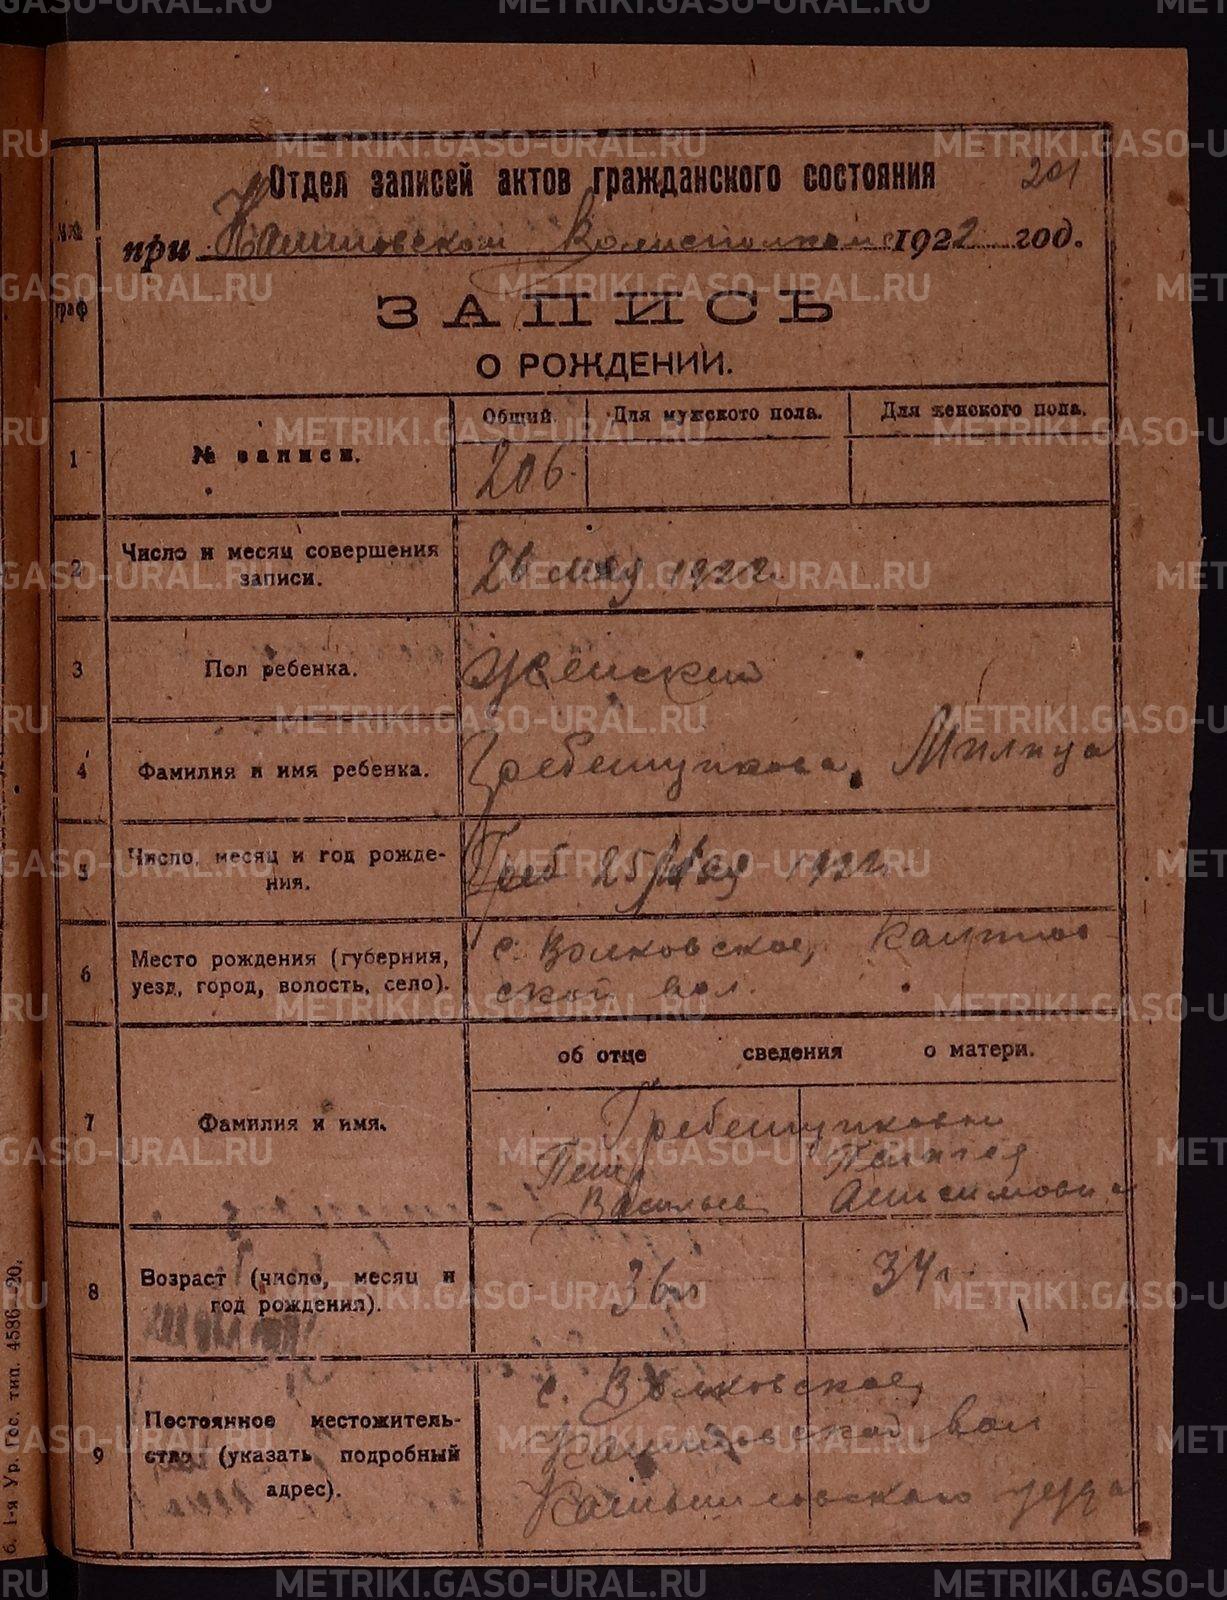 Отдел записей актов гражданского состояния 201
при Волисполкоме 1922 год.
№№
граф
ЗАПИСЬ
О РОЖДЕНИИ.
Общий. Для мужского пола. Для женского пола.
1 № записи. 206.
2 Число и месяц совершения
записи. 26 мая 1922 г.
3 Пол ребенка. Женский
4 Фамилия и имя ребенка. Гребенщикова, Милица
5 Число, месяц и год рожде-
ния. 25 Мая 1922 г.
6 Место рождения (губерния,
уезд, город, волость, село).
с. Волковское,
ской вол.
об отце сведения о матери.
7 Фамилия и имя.
Петр
Васильев
Пелагея
Анисимовна
8 Возраст (число, месяц и
год рождения). 36 л 34 г.
9 Постоянное местожитель-
ство (указать подробный
адрес).
с. Волковское,
вол
Камышловского уезда
6. 1-я Ур. Гос. тип. 4586—20.
METRIKI.GASO-URAL.RU